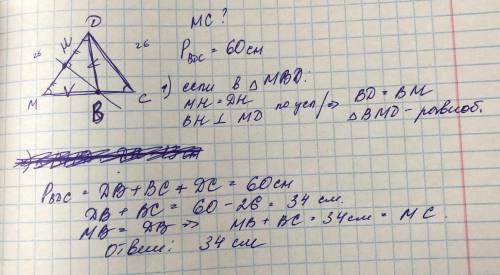 D
MC?
26
H
26
P BDC = 60 см
M
V
B
C
1) если в △MBD:
MH = DH
BH ⊥ MD
по усл/⇒ BD = BM
△BMD - равноб.
P BDC = DB + BC + DC = 60 см
DB + BC = 60 - 26 = 34 см.
MB = DB ⇒ MB + BC = 34 см = MC.
Ответ: 34 см